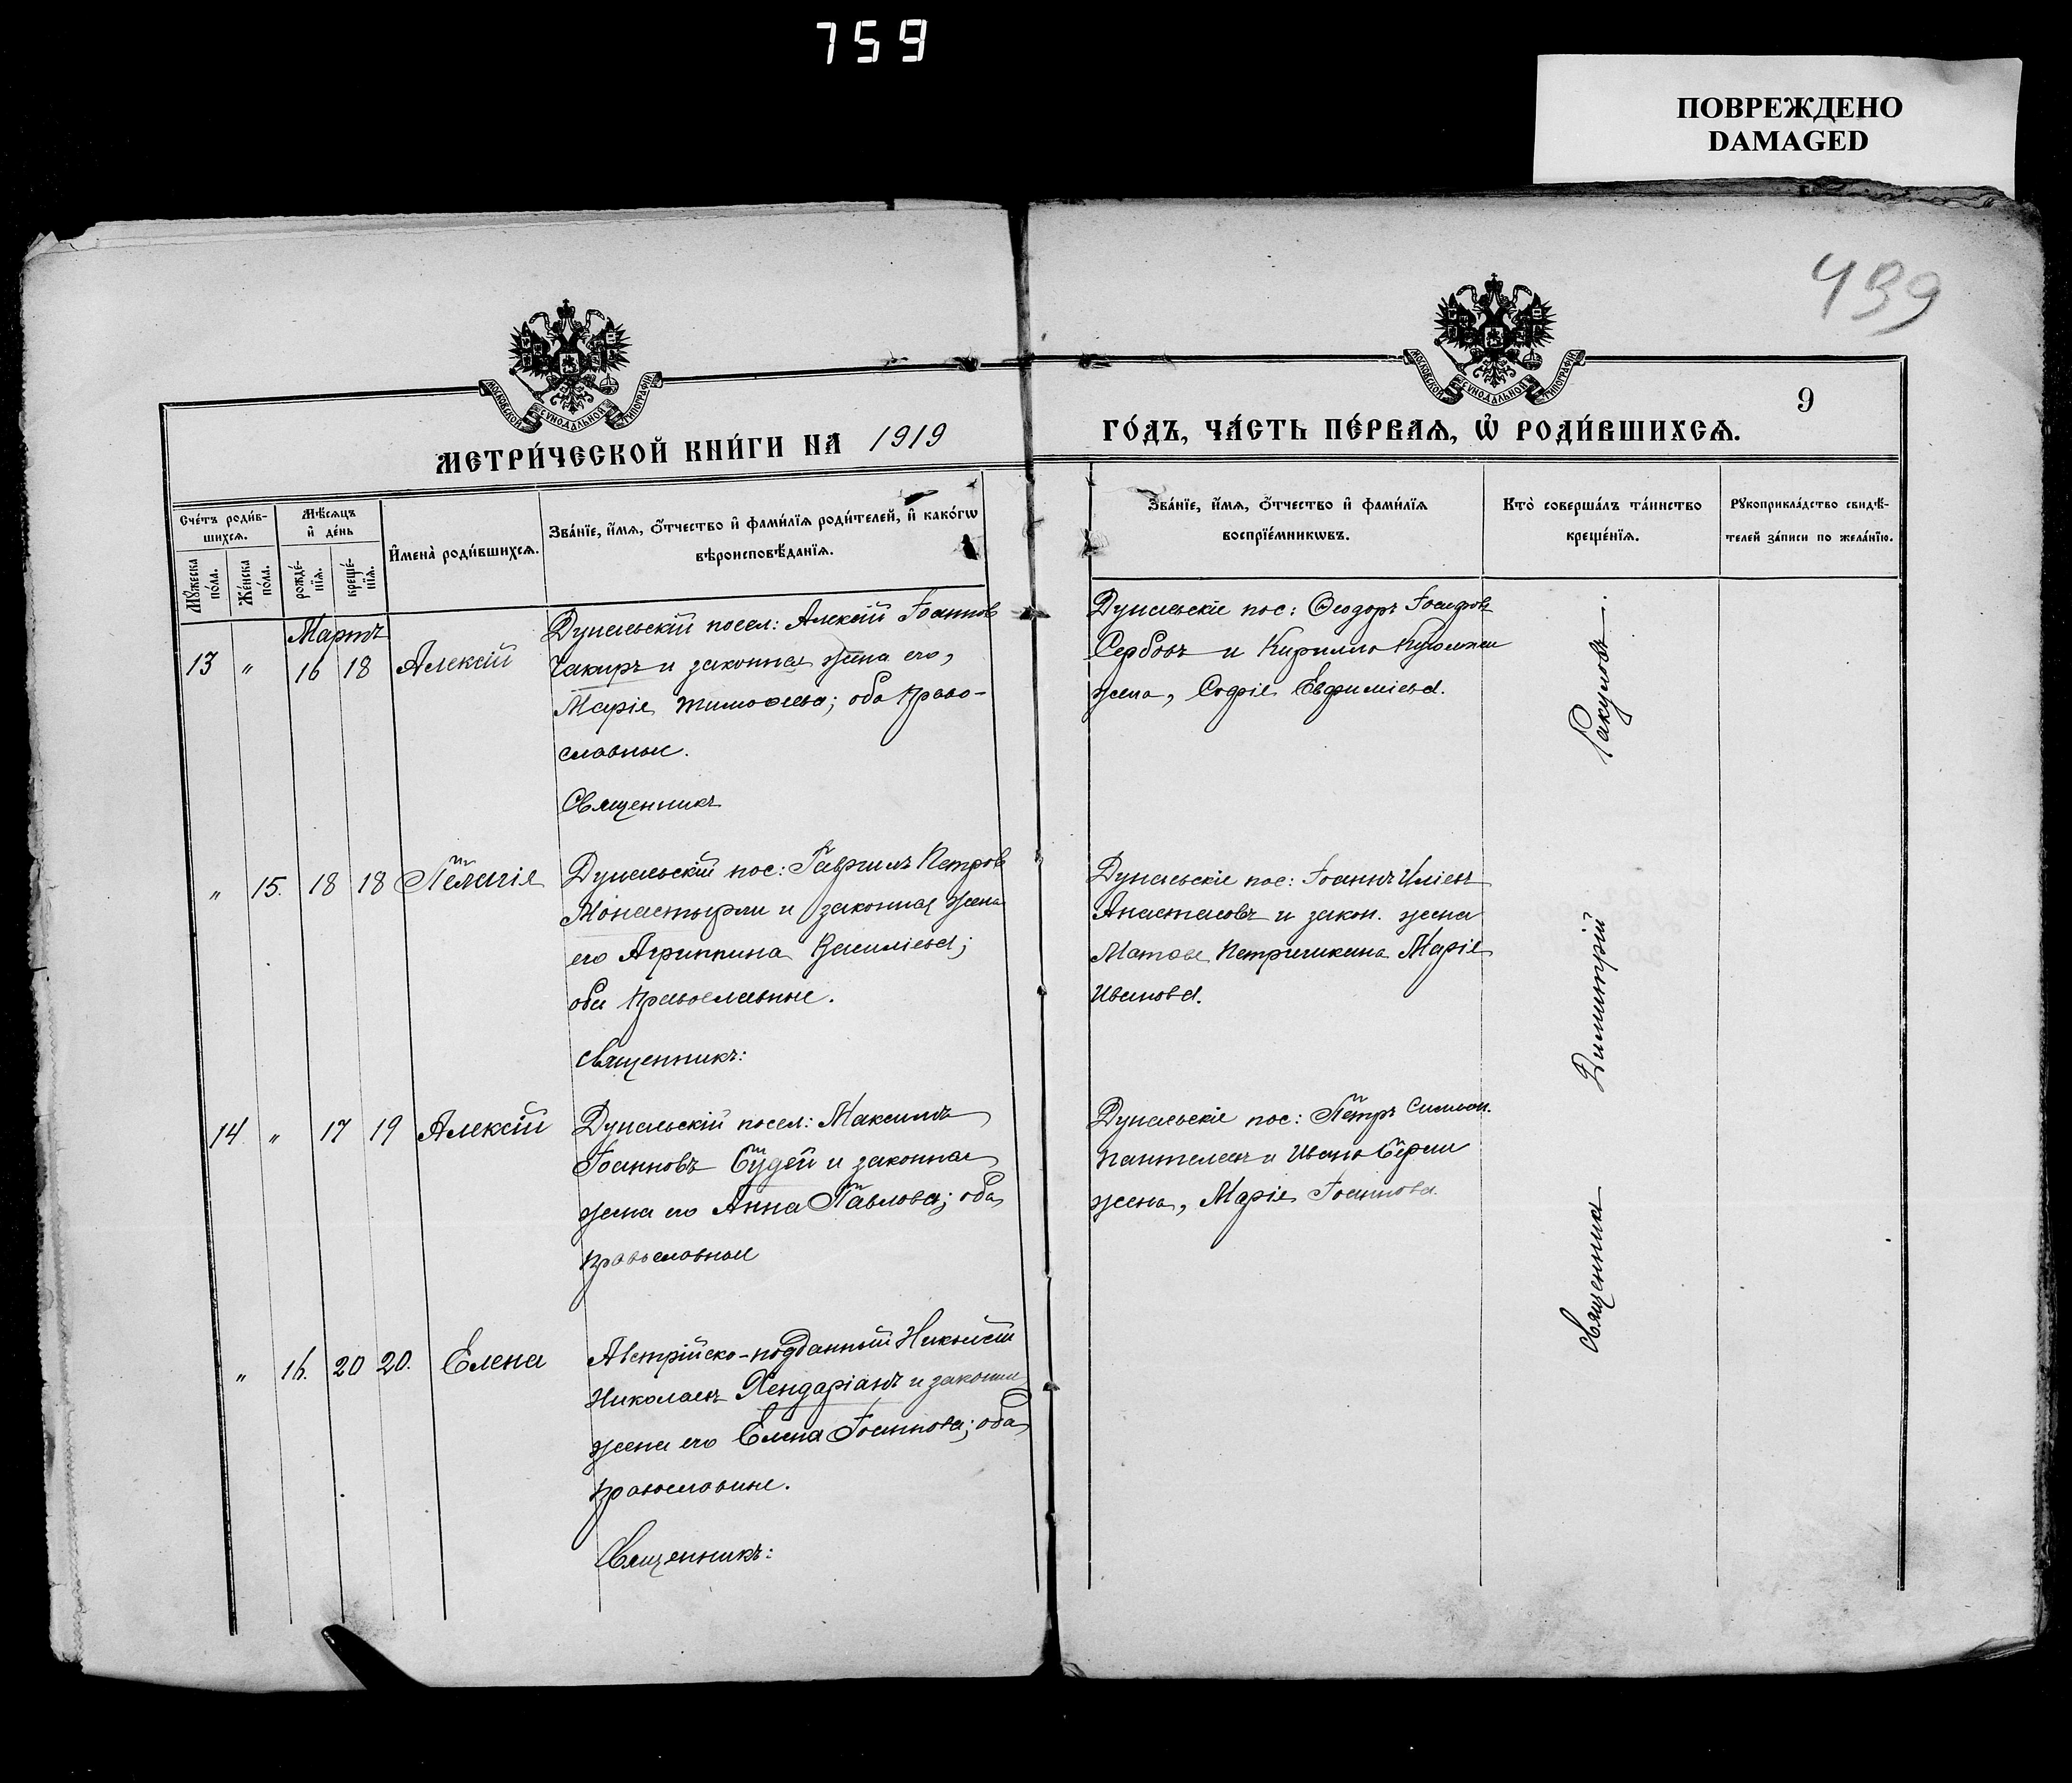 759
ПОВРЕЖДЕНО
DAMAGED
439
МОСКОВСКОЙ СѴНОДАЛЬНОЙ ТИПОГРАФІИ
МОСКОВСКОЙ СѴНОДАЛЬНОЙ ТИПОГРАФІИ
9
МЕТРИ́ЧЕСКОЙ КНИ́ГИ НА 1919
ГО́ДЪ, ЧА́СТЬ ПЕ́РВАѦ, Ѡ҆ РОДИ́ВШИХСѦ.
Сче́тъ роди́в-
шихсѧ.
Мѹ́жеска по́ла.
Же́нска по́ла.
Мѣ́сѧцъ
и҆ де́нь
рожде́-
нїѧ.
креще́-
нїѧ.
И҆мена̀ роди́вшихсѧ.
Зва́нїе, и҆́мѧ, ѻ҆́тчество и҆ фами́лїѧ роди́телей, и҆ како́гѡ
вѣроисповѣ́данїѧ.
Зва́нїе, и҆́мѧ, ѻ҆́тчество и҆ фами́лїѧ
воспрїе́мникѡвъ.
Кто̀ соверша́лъ та́инство
креще́нїѧ.
Рѹкоприкла́дство свидѣ́-
телей за́писи по жела́нїю.
Мартъ
13 " 16 18 Алексій
Дунаевскій посел: Алексій Іоаннов
Чакиръ и законная жена его,
Марія Тимофеева; оба право-
славные.
Священникъ
Дунаевскіе пос: Ѳеодоръ Іосифовъ
Сербовъ и Кирилла
жена, Софія Евфиміева.
" 15. 18 18 Пелагія
Дунаевскій пос: Гавриилъ Петров
Монастырли и законная жена
его Агриппина Василіева;
оба православные.
Священникъ:
Дунаевскіе пос: Іоаннъ Иліевъ
Анастасовъ и закон. жена
Матвея Марія
Иванова.
14 " 17 19 Алексій
Дунаевскій посел: Максимъ
Іоанновъ и законная
жена его Анна Павлова; оба
православные
Дунаевскіе пос: Петръ Симеон.
Пантелеевъ и Ивана
жена, Марія Іоаннова.
" 16. 20 20. Елена
Австрійско-подданный Николай
Николаевъ и законная
жена его Елена Іоаннова; оба
православные.
Священникъ:
Священникъ Димитрій